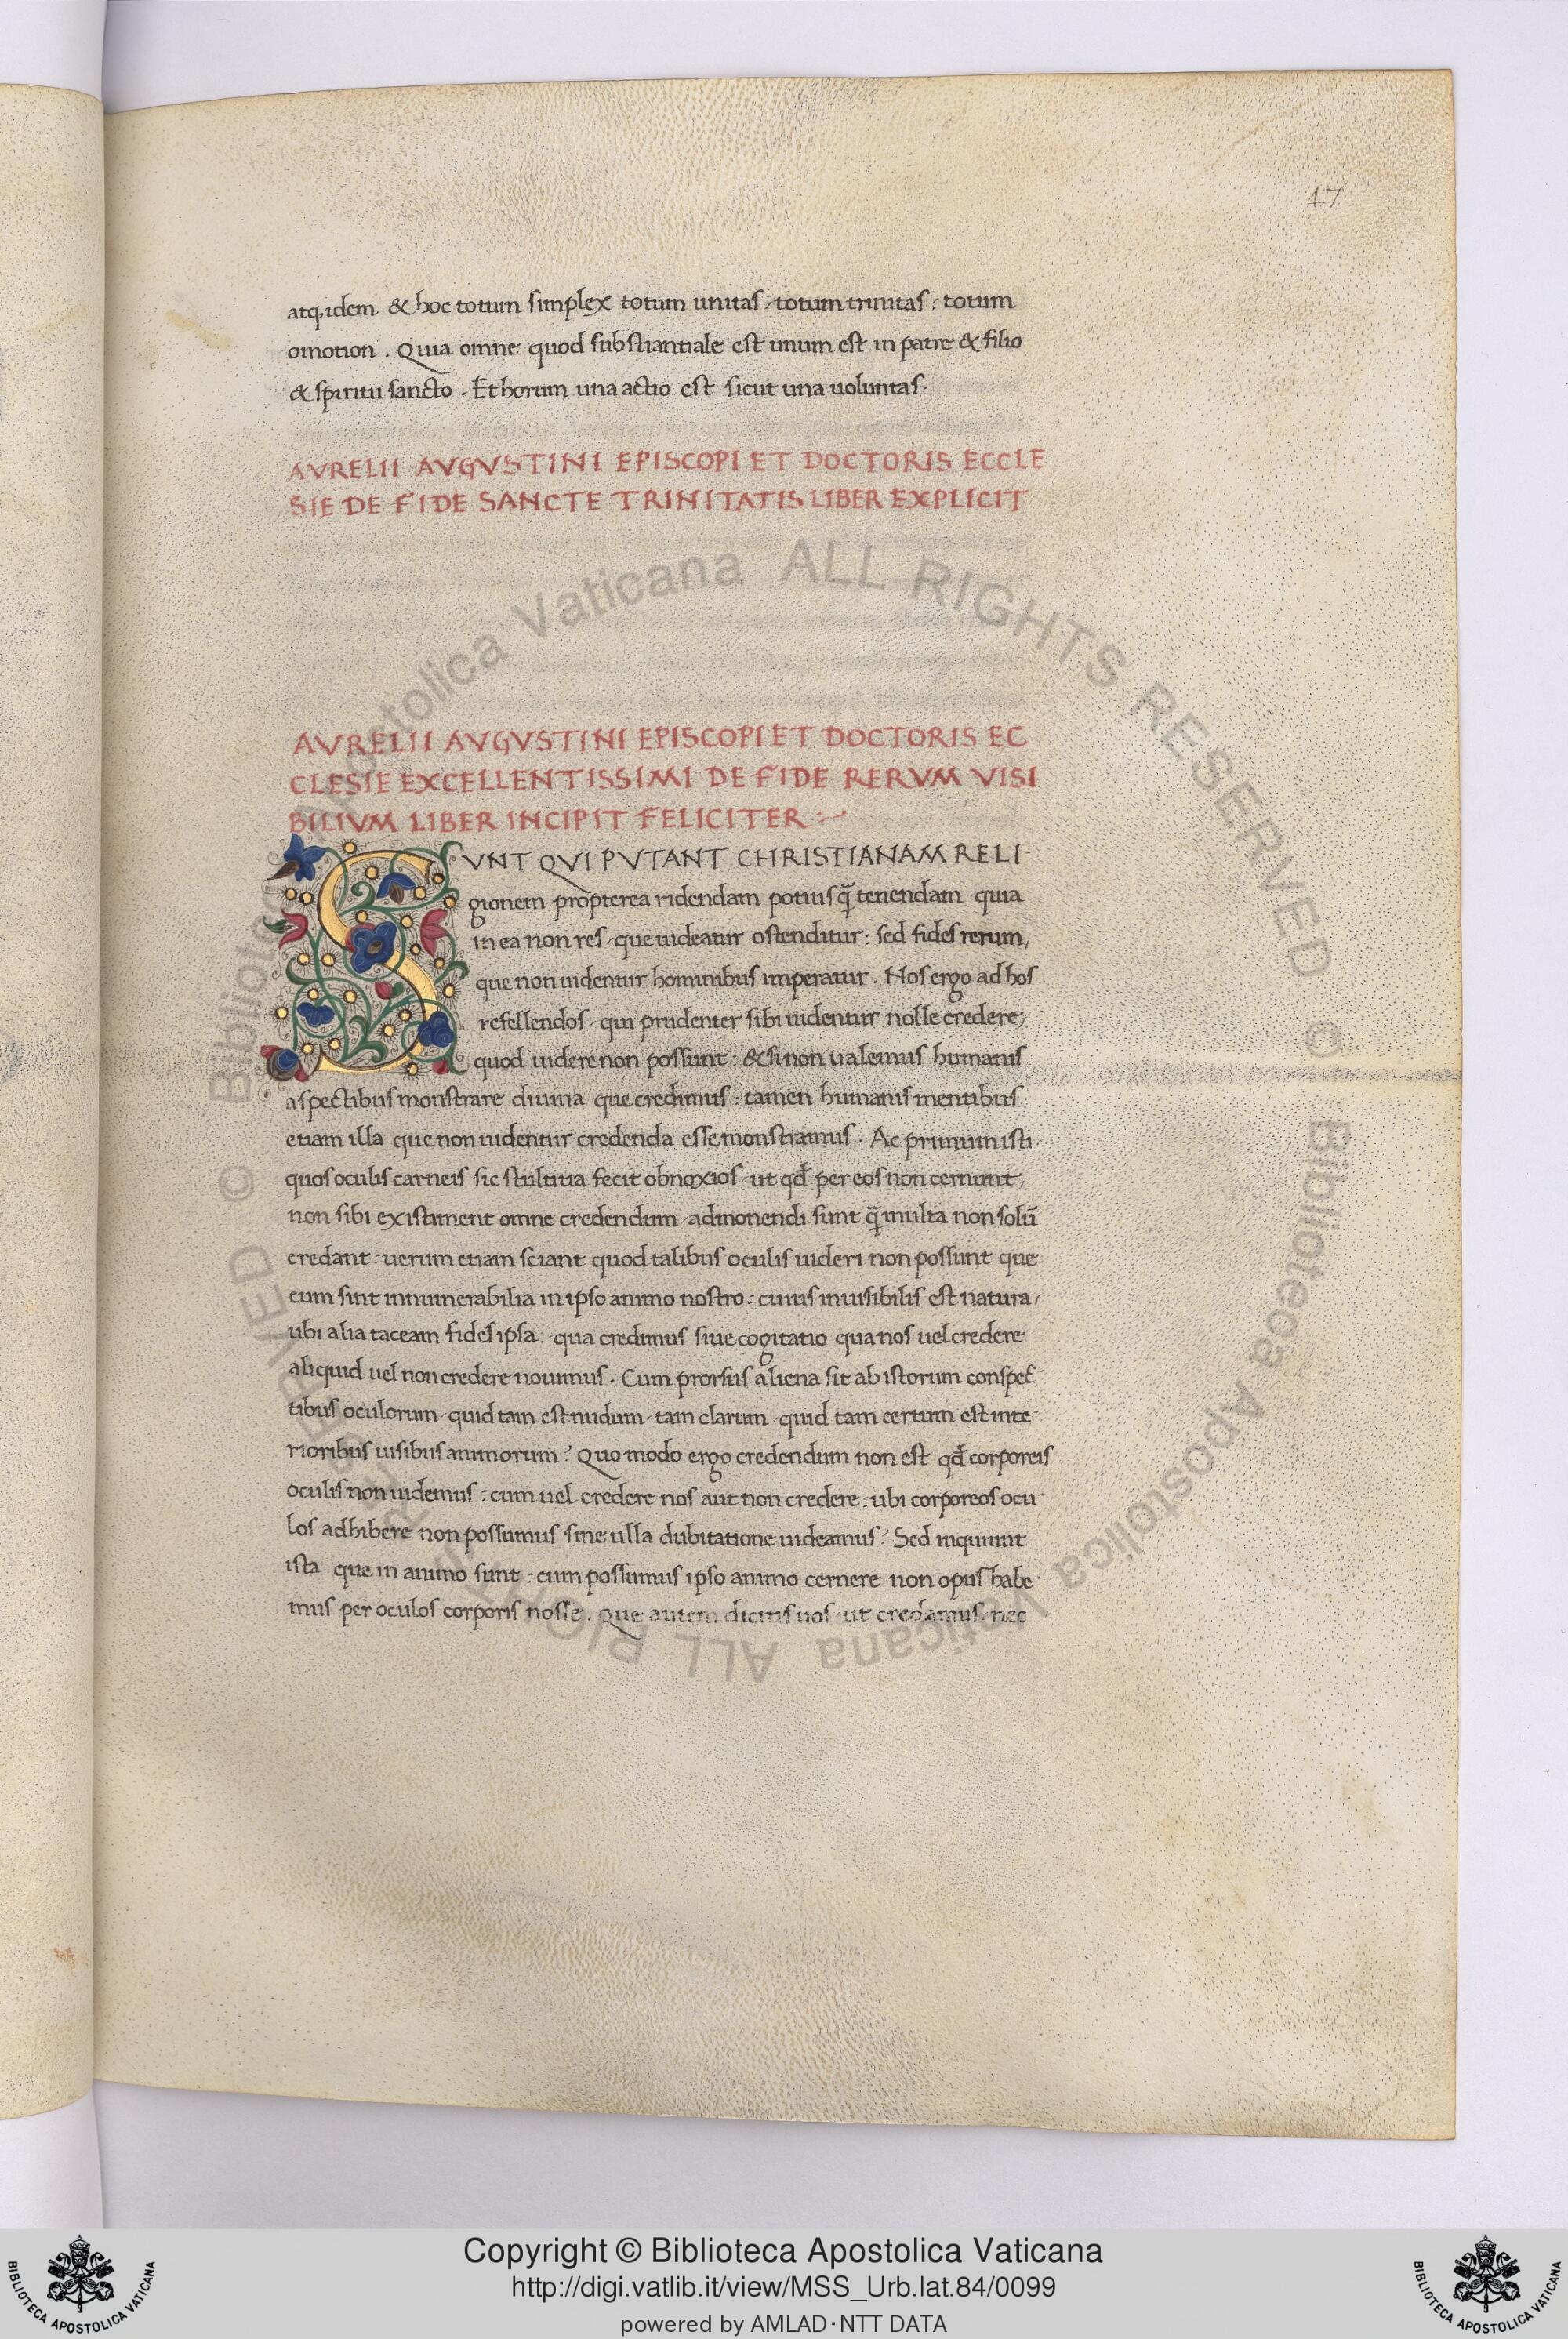 47
atq, idem. & hoc totum simplex totum unitas, totum trinitas: totum
omotion. Quia omne quod substiantiale est unum est in patre & filio
& spiritu sancto. Et horum una actio est sicut una uoluntas.
AVRELII AVGVSTINI EPISCOPI ET DOCTORIS ECCLE
SIE DE FIDE SANCTE TRINITATIS LIBER EXPLICIT
AVRELII AVGVSTINI EPISCOPI ET DOCTORIS EC
CLESIE EXCELLENTISSIMI DE FIDE RERVM VISI
BILIVM LIBER INCIPIT FELICITER
SVNT QVI PVTANT CHRISTIANAM RELI
gionem propterea ridendam potius q̃ tenendam quia
in ea non res, que uideatur ostenditur: sed fides rerum,
que non uidentur hominibus imperatur. Nos ergo ad hos
refellendos, qui prudenter sibi uidentur nolle credere,
quod uidere non possunt: & si non ualemus humanis
aspectibus monstrare diuina que credimus: tamen humanis mentibus
etiam illa que non uidentur credenda esse monstramus. Ac primum isti
quos oculis carneis sic stultitia fecit obnoxios, ut qd̃ per eos non cernunt,
non sibi existiment omne credendum, admonendi sunt q̃ multa non solũ
credant: uerum etiam sciant quod talibus oculis uideri non possunt que
cum sint innumerabilia in ipso animo nostro: cuius inuisibilis est natura,
ubi alia taceam fides ipsa, qua credimus siue cogitatio qua nos uel credere
aliquid uel non credere nouimus. Cum prorsus aliena sit ab istorum conspec-
tibus oculorum, quid tam est nudum, tam clarum, quid tam certum est inte-
rioribus uisibus animorum? Quo modo ergo credendum non est qd̃ corporeis
oculis non uidemus: cum uel credere nos aut non credere: ubi corporeos ocu-
los adhibere non possumus sine ulla dubitatione uideamus? Sed inquiunt
ista que in animo sunt: cum possumus ipso animo cernere non opus habe-
mus per oculos corporis nosse. Que autem dicitis uos, ut credamus, nec
© Biblioteca Apostolica Vaticana ALL RIGHTS RESERVED © Biblioteca Apostolica Vaticana ALL RIGHTS RESERVED
Copyright © Biblioteca Apostolica Vaticana
http://digi.vatlib.it/view/MSS_Urb.lat.84/0099
powered by AMLAD·NTT DATA
BIBLIOTECA APOSTOLICA VATICANA
BIBLIOTECA APOSTOLICA VATICANA